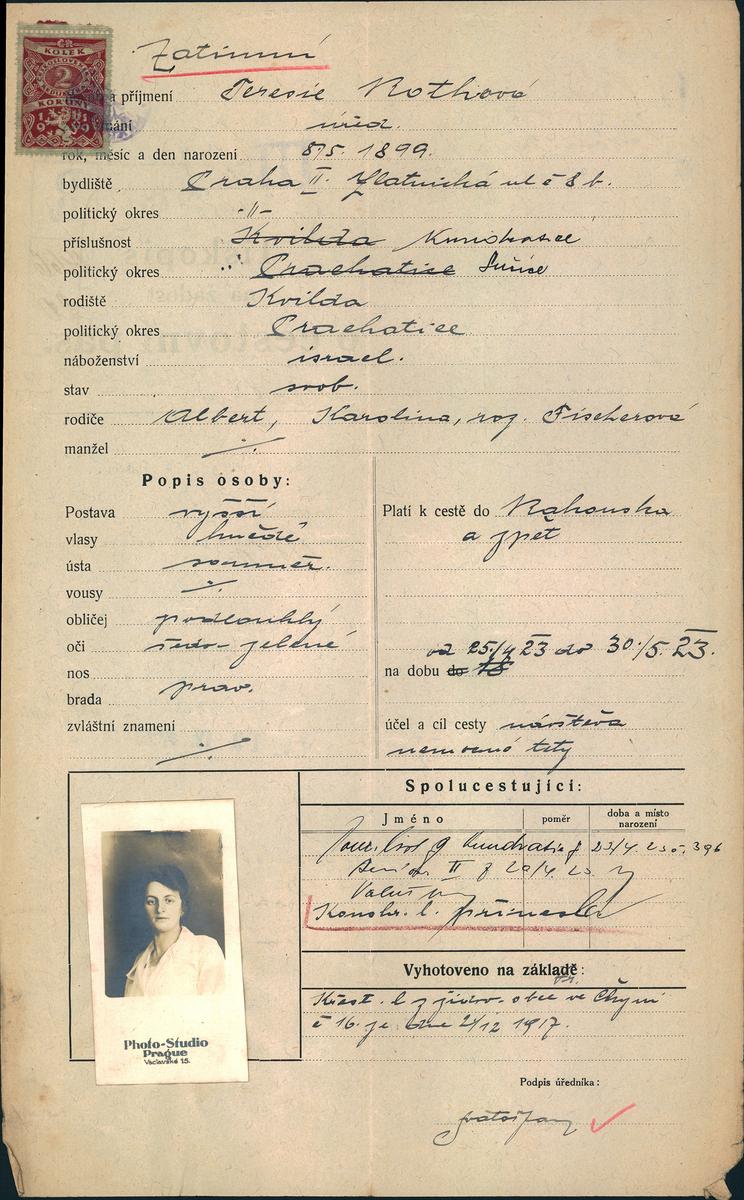 ČR
KOLEK
2
KORUNY
Zatimní
a příjmení Teresie Rothová
úřed.
rok, měsíc a den narození 8/5. 1899.
bydliště Praha II. Zlatnická ul č 8 b.
politický okres -"-
příslušnost Kvilda Kundratice
politický okres Prachatice Sušice
rodiště Kvilda
politický okres Prachatice
náboženství israel.
stav svob.
rodiče Albert, Karolina, roz. Fischerová
manžel ./.
Popis osoby:
Postava vyšší
vlasy hnědé
ústa souměr.
vousy ./.
obličej podlouhlý
oči šedo-zelené
nos
brada prav.
zvláštní znamení
./.
Platí k cestě do Rakouska
a zpět
od 25./4 23 do 30./5. 23.
na dobu do
účel a cíl cesty návštěva
nemocné tety
Spolucestující:
Jméno poměr doba a místo narození
23/4. 23
II 20/4. 23
přinesla
Vyhotoveno na základě:
Křest. l z židov. obce ve Čkyni
č 16 je dne 21/12 1917.
Photo-Studio
Prague
Václavské 15.
Podpis úředníka: